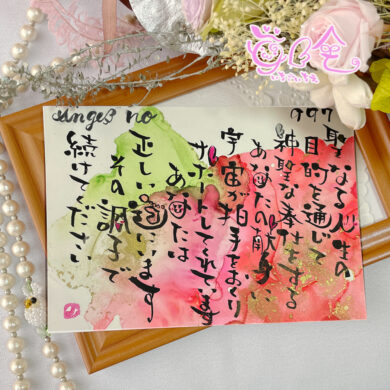 Angel no
997
聖なる人生の
目的を通じて
神聖な奉仕をする
あなたの献身に
宇宙が拍手をおくり
サポートしてくれています
あなたは
正しい道にいます
その調子で
続けてください